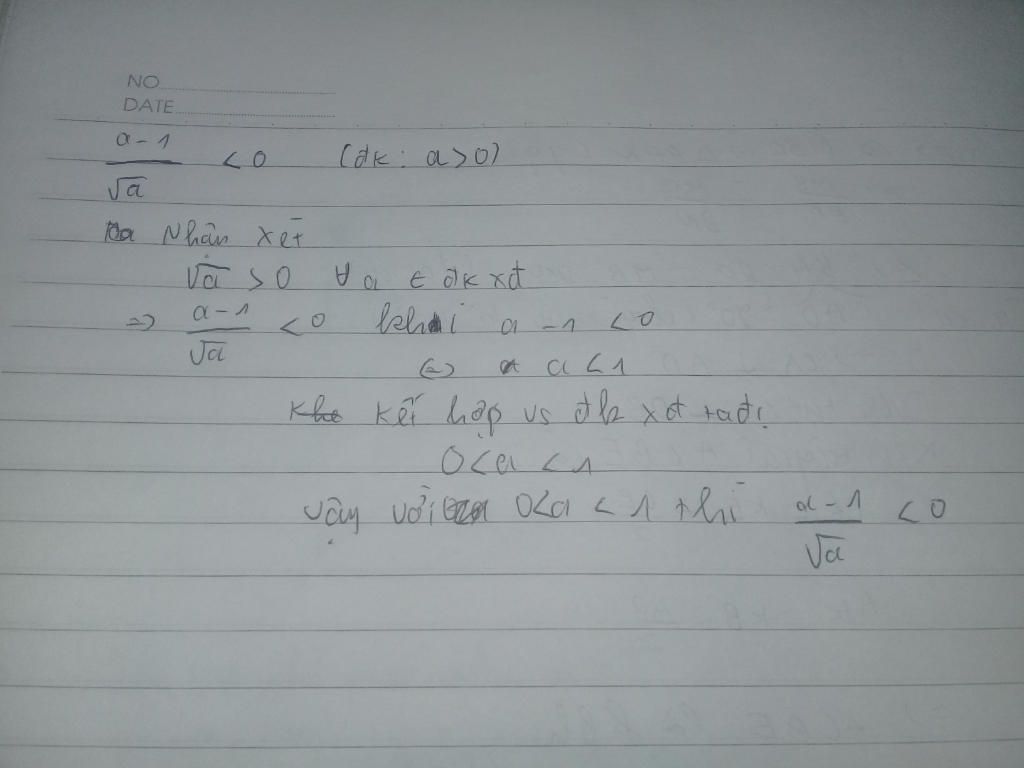 NO
DATE
a-1/√a < 0 (đk: a>0)
Nhận xét
√a > 0 ∀ a ∈ đk xđ
=> a-1/√a < 0 khi a - 1 < 0
<=> a < 1
Kết hợp vs đk xđ tađ:
0<a <1
Vậy với 0<a < 1 thì a-1/√a < 0